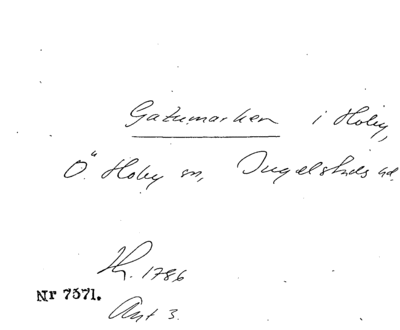 Gatumarken i Hoby,
Ö. Hoby sn, Ingelstads hd.
Th. 1786
Nr 7371.
Ant 3.